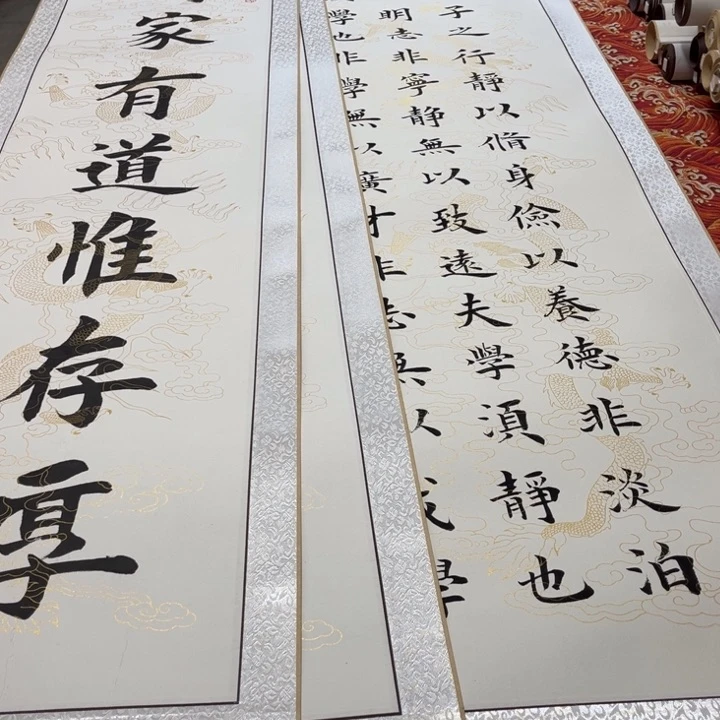 子之行靜以脩身儉以養德非淡泊
明志非寧靜無以致遠夫學須靜也
學也非學無以廣才非志無以成學
家有道惟存厚